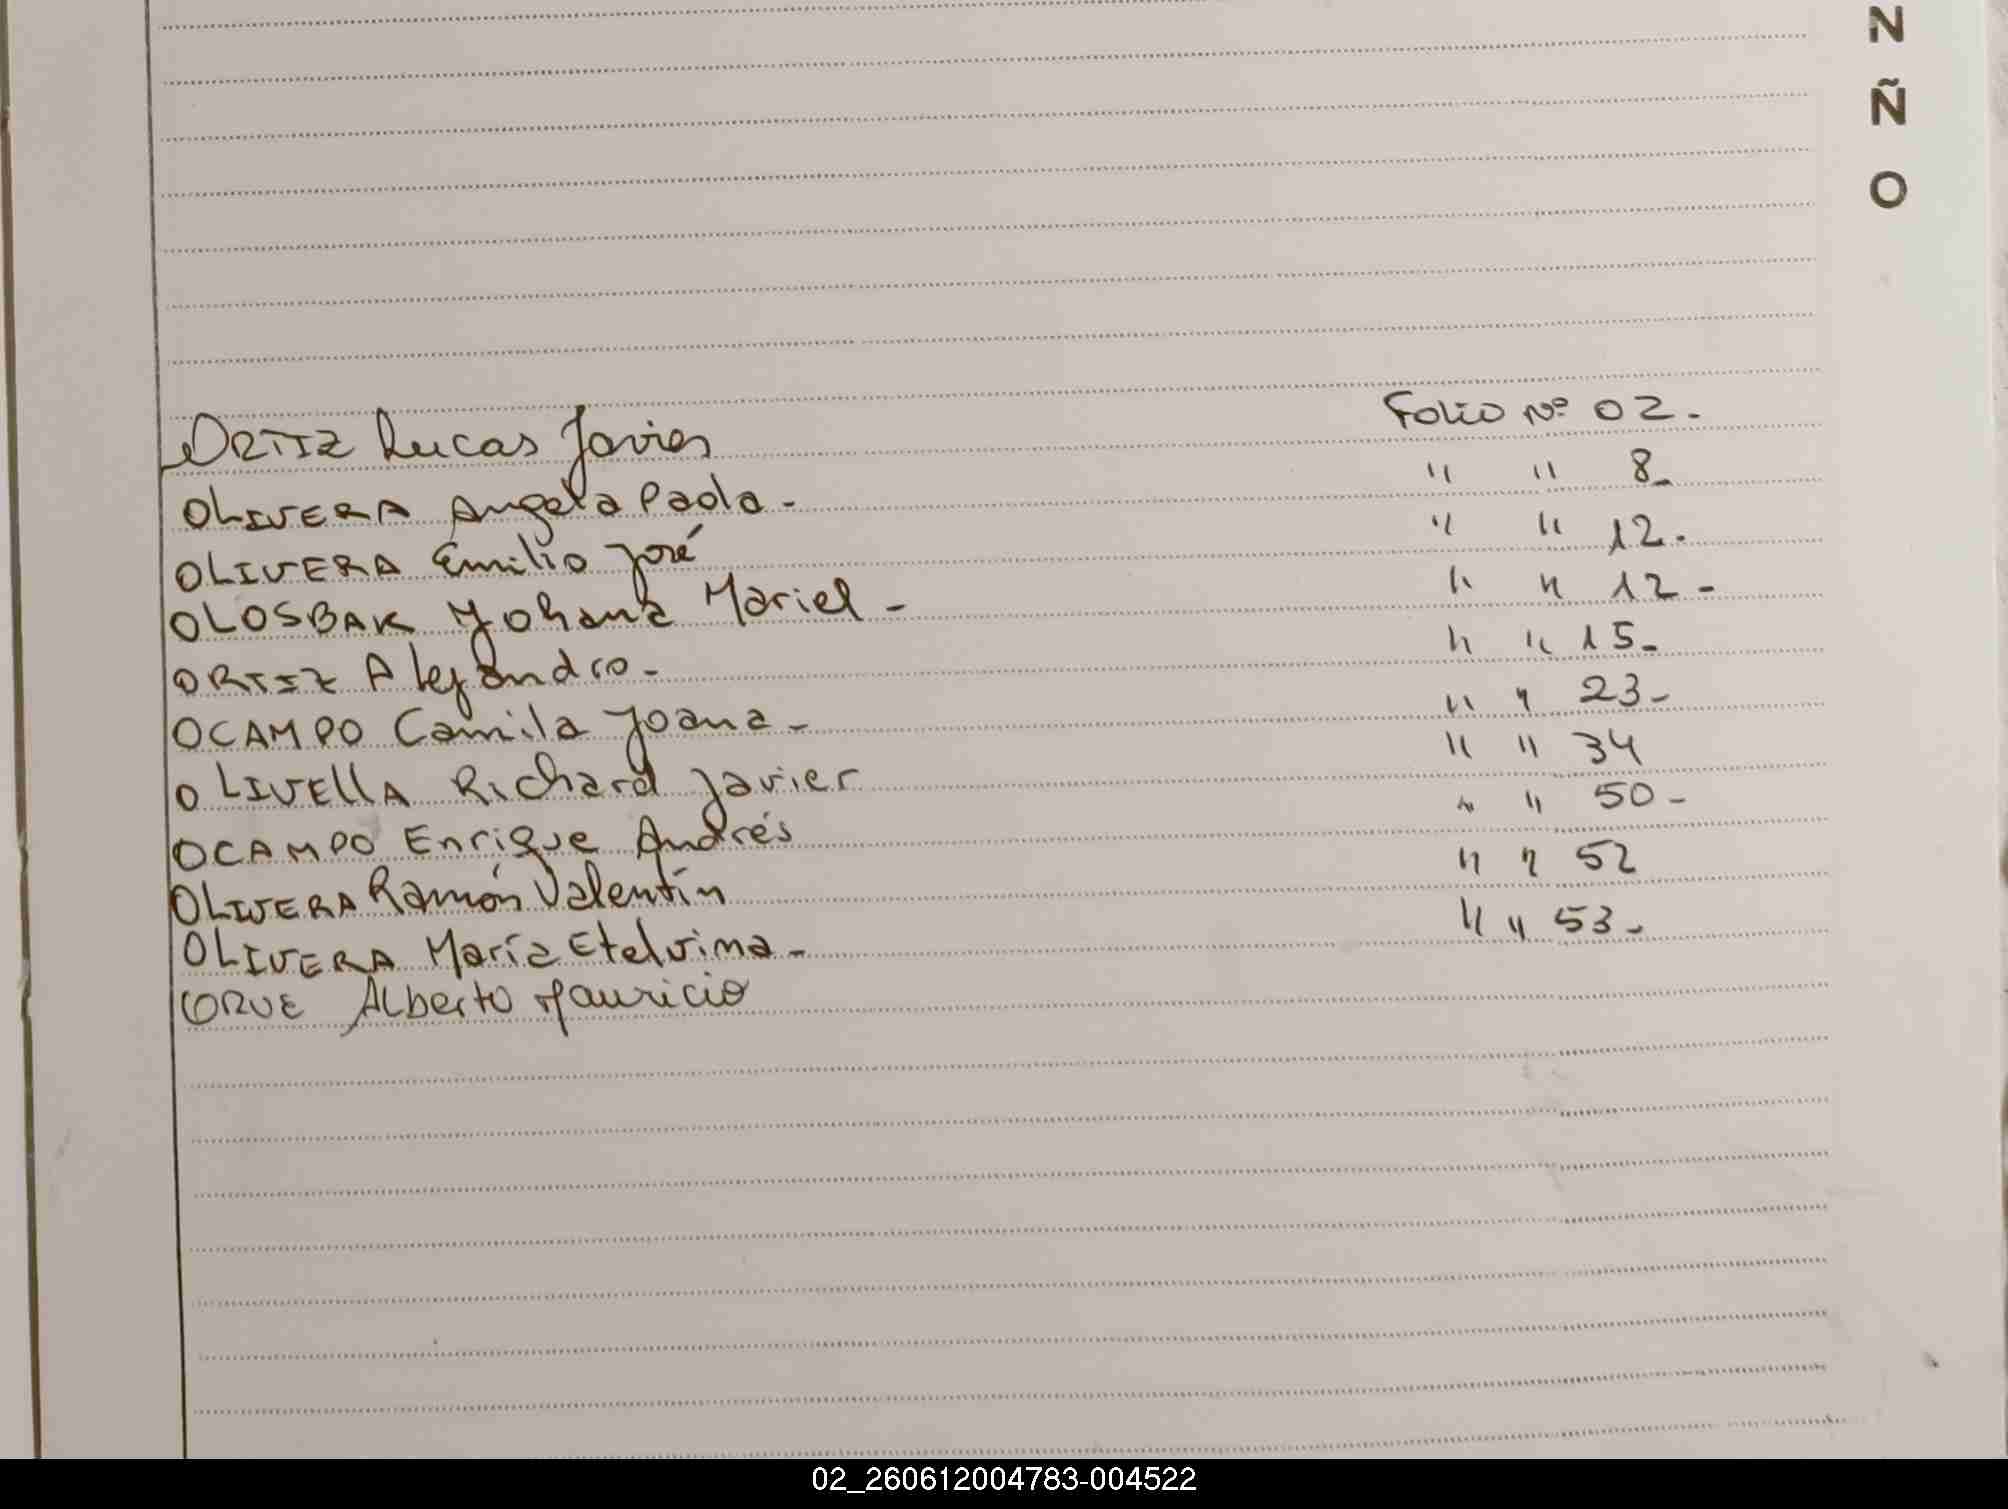 N
Ñ
O
ORTIZ Lucas Javier Folio Nº 02.
OLIVERA Angela Paola - " " 8-
OLIVERA Emilio José " " 12.
OLOSBAK Yohana Mariel - " " 12-
ORTIZ Alejandro - " " 15-
OCAMPO Camila Joana - " " 23-
OLIVELLA Richard Javier " " 34
OCAMPO Enrique Andrés " " 50-
OLIVERA Ramón Valentín " " 52
OLIVERA María Etelvina - " " 53-
ORUE Alberto Mauricio
02_260612004783-004522